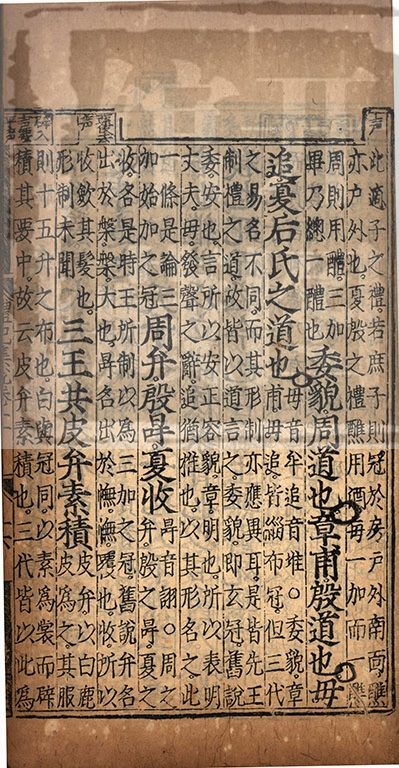 此適子之禮若庶子則冠於房戶外南面醮
亦戶外也夏殷之禮醮用酒每一加而一醮
周則用醴三加
畢乃總一醴也
委貌周道也章甫殷道也毋
追夏后氏之道也
毋音牟追音堆○委貌章
甫毋追皆緇布冠但三代
之易名不同而其形制亦應異耳是皆先王
制禮之道故皆以道言之委貌即玄冠舊說
委安也言所以安正容貌章明也所以表明
丈夫毋發聲之辭追猶椎也以其形名之此
一條是論三
加始加之冠
周弁殷冔夏收
冔音詡○周之
弁殷之冔夏之
收各是時王所制以為三加之冠舊說弁名
出於槃槃大也冔名出於幠幠覆也收所以
收斂其髮也
形制未聞
三王共皮弁素積
皮弁以白鹿
皮為之其服
則十五升之布也白與冠同以素為裳而辟
積其要中故云皮弁素積也三代皆以此為